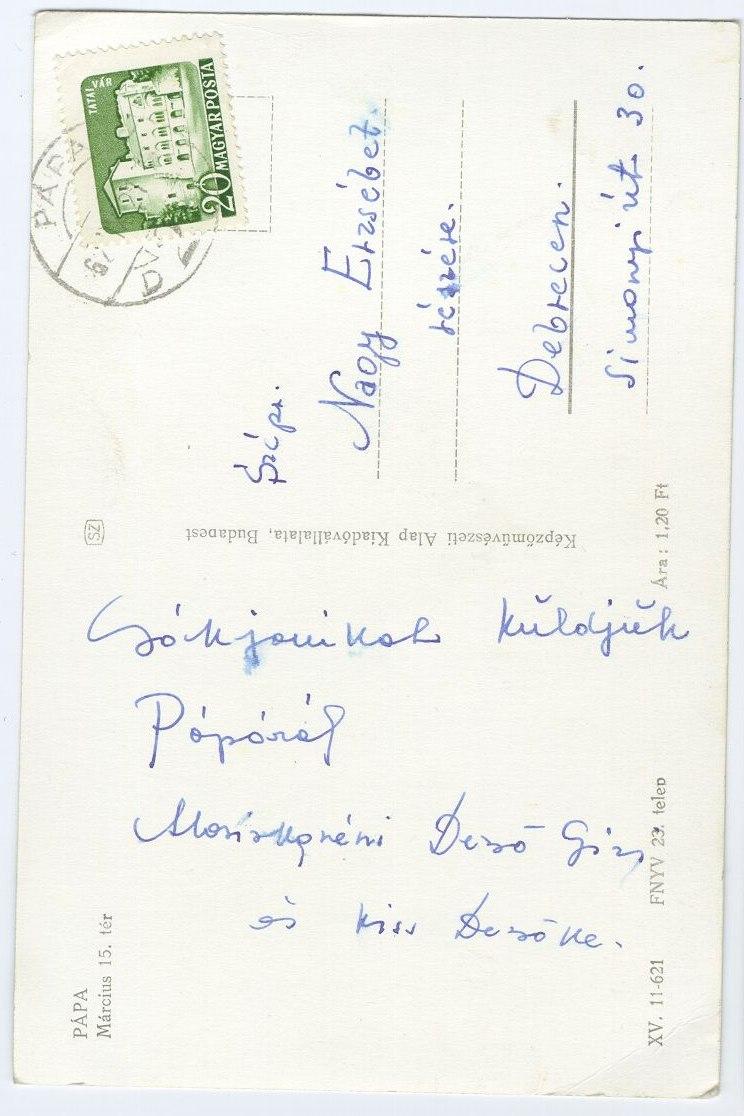 PÁPA
Március 15. tér
TATAI VÁR
20 MAGYAR POSTA
PÁPA
Szépr.
Nagy Erzsébet
részére.
Debrecen.
Simonyi út 30.
SZ
Képzőművészeti Alap Kiadóvállalata, Budapest
Ára: 1,20 Ft
Csókjainkat küldjük
Pápáról
Mariskanéni Dezső Gizi
és kiss Dezsőke.
XV. 11-621 FNYV 23. telep